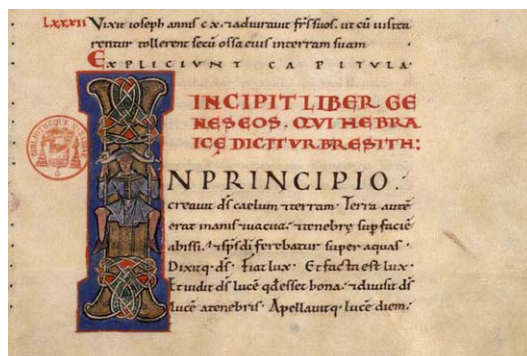 LXXXII Vixit ioseph annis c x. ⁊ adiurauit fr̄s suos. ut cū uisita
rentur tollerent secū ossa eius in terram suam
EXPLICIUNT CAPITULA
INCIPIT LIBER GE
NESEOS. QVI HEBRA
ICĘ DICITVR BRESITH:
BIBLIOTHEQUE
IN PRINCIPIO.
creauit dš caelum ⁊ terram. Terra autē
erat inanis ⁊ uacua. ⁊ tenebrę sup faciē
abissi. ⁊ sp̄s dī ferebatur super aquas.
Dixitq; dš. Fiat lux. Et facta est lux.
Et uidit dš lucē qđ esset bona. ⁊ diuisit dš
lucē a tenebris. Apellauitq; lucē diem.